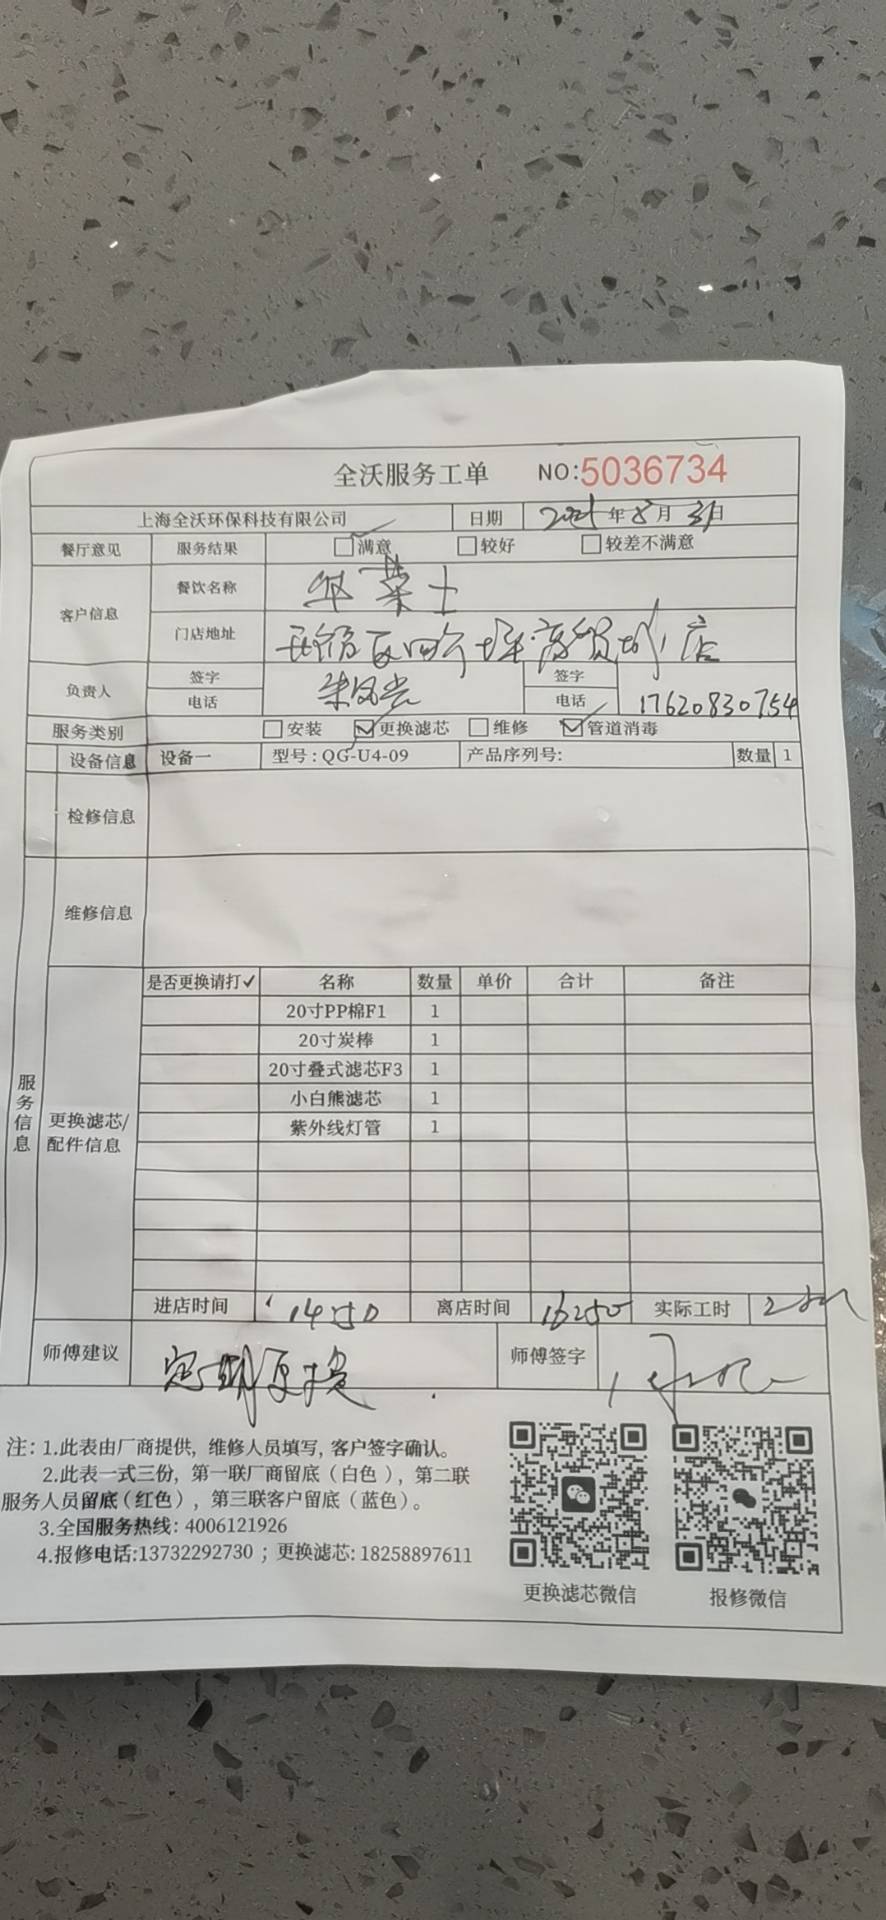 全沃服务工单 NO:5036734
上海全沃环保科技有限公司 日期 年8月31日
餐厅意见 服务结果 满意 较好 较差不满意
客户信息 餐饮名称 华莱士
门店地址 商贸城店
负责人 签字 签字
电话 电话 17620830754
服务类别 安装 更换滤芯 维修 管道消毒
设备信息 设备一 型号:QG-U4-09 产品序列号: 数量 1
检修信息
维修信息
服务信息
更换滤芯/配件信息
是否更换请打✓ 名称 数量 单价 合计 备注
20寸PP棉F1 1
20寸炭棒 1
20寸叠式滤芯F3 1
小白熊滤芯 1
紫外线灯管 1
进店时间 14:50 离店时间 16:50 实际工时 2
师傅建议 定期更换 师傅签字
注: 1.此表由厂商提供, 维修人员填写, 客户签字确认。
2.此表一式三份, 第一联厂商留底(白色), 第二联
服务人员留底(红色), 第三联客户留底(蓝色)。
3.全国服务热线: 4006121926
4.报修电话:13732292730 ; 更换滤芯: 18258897611
更换滤芯微信 报修微信